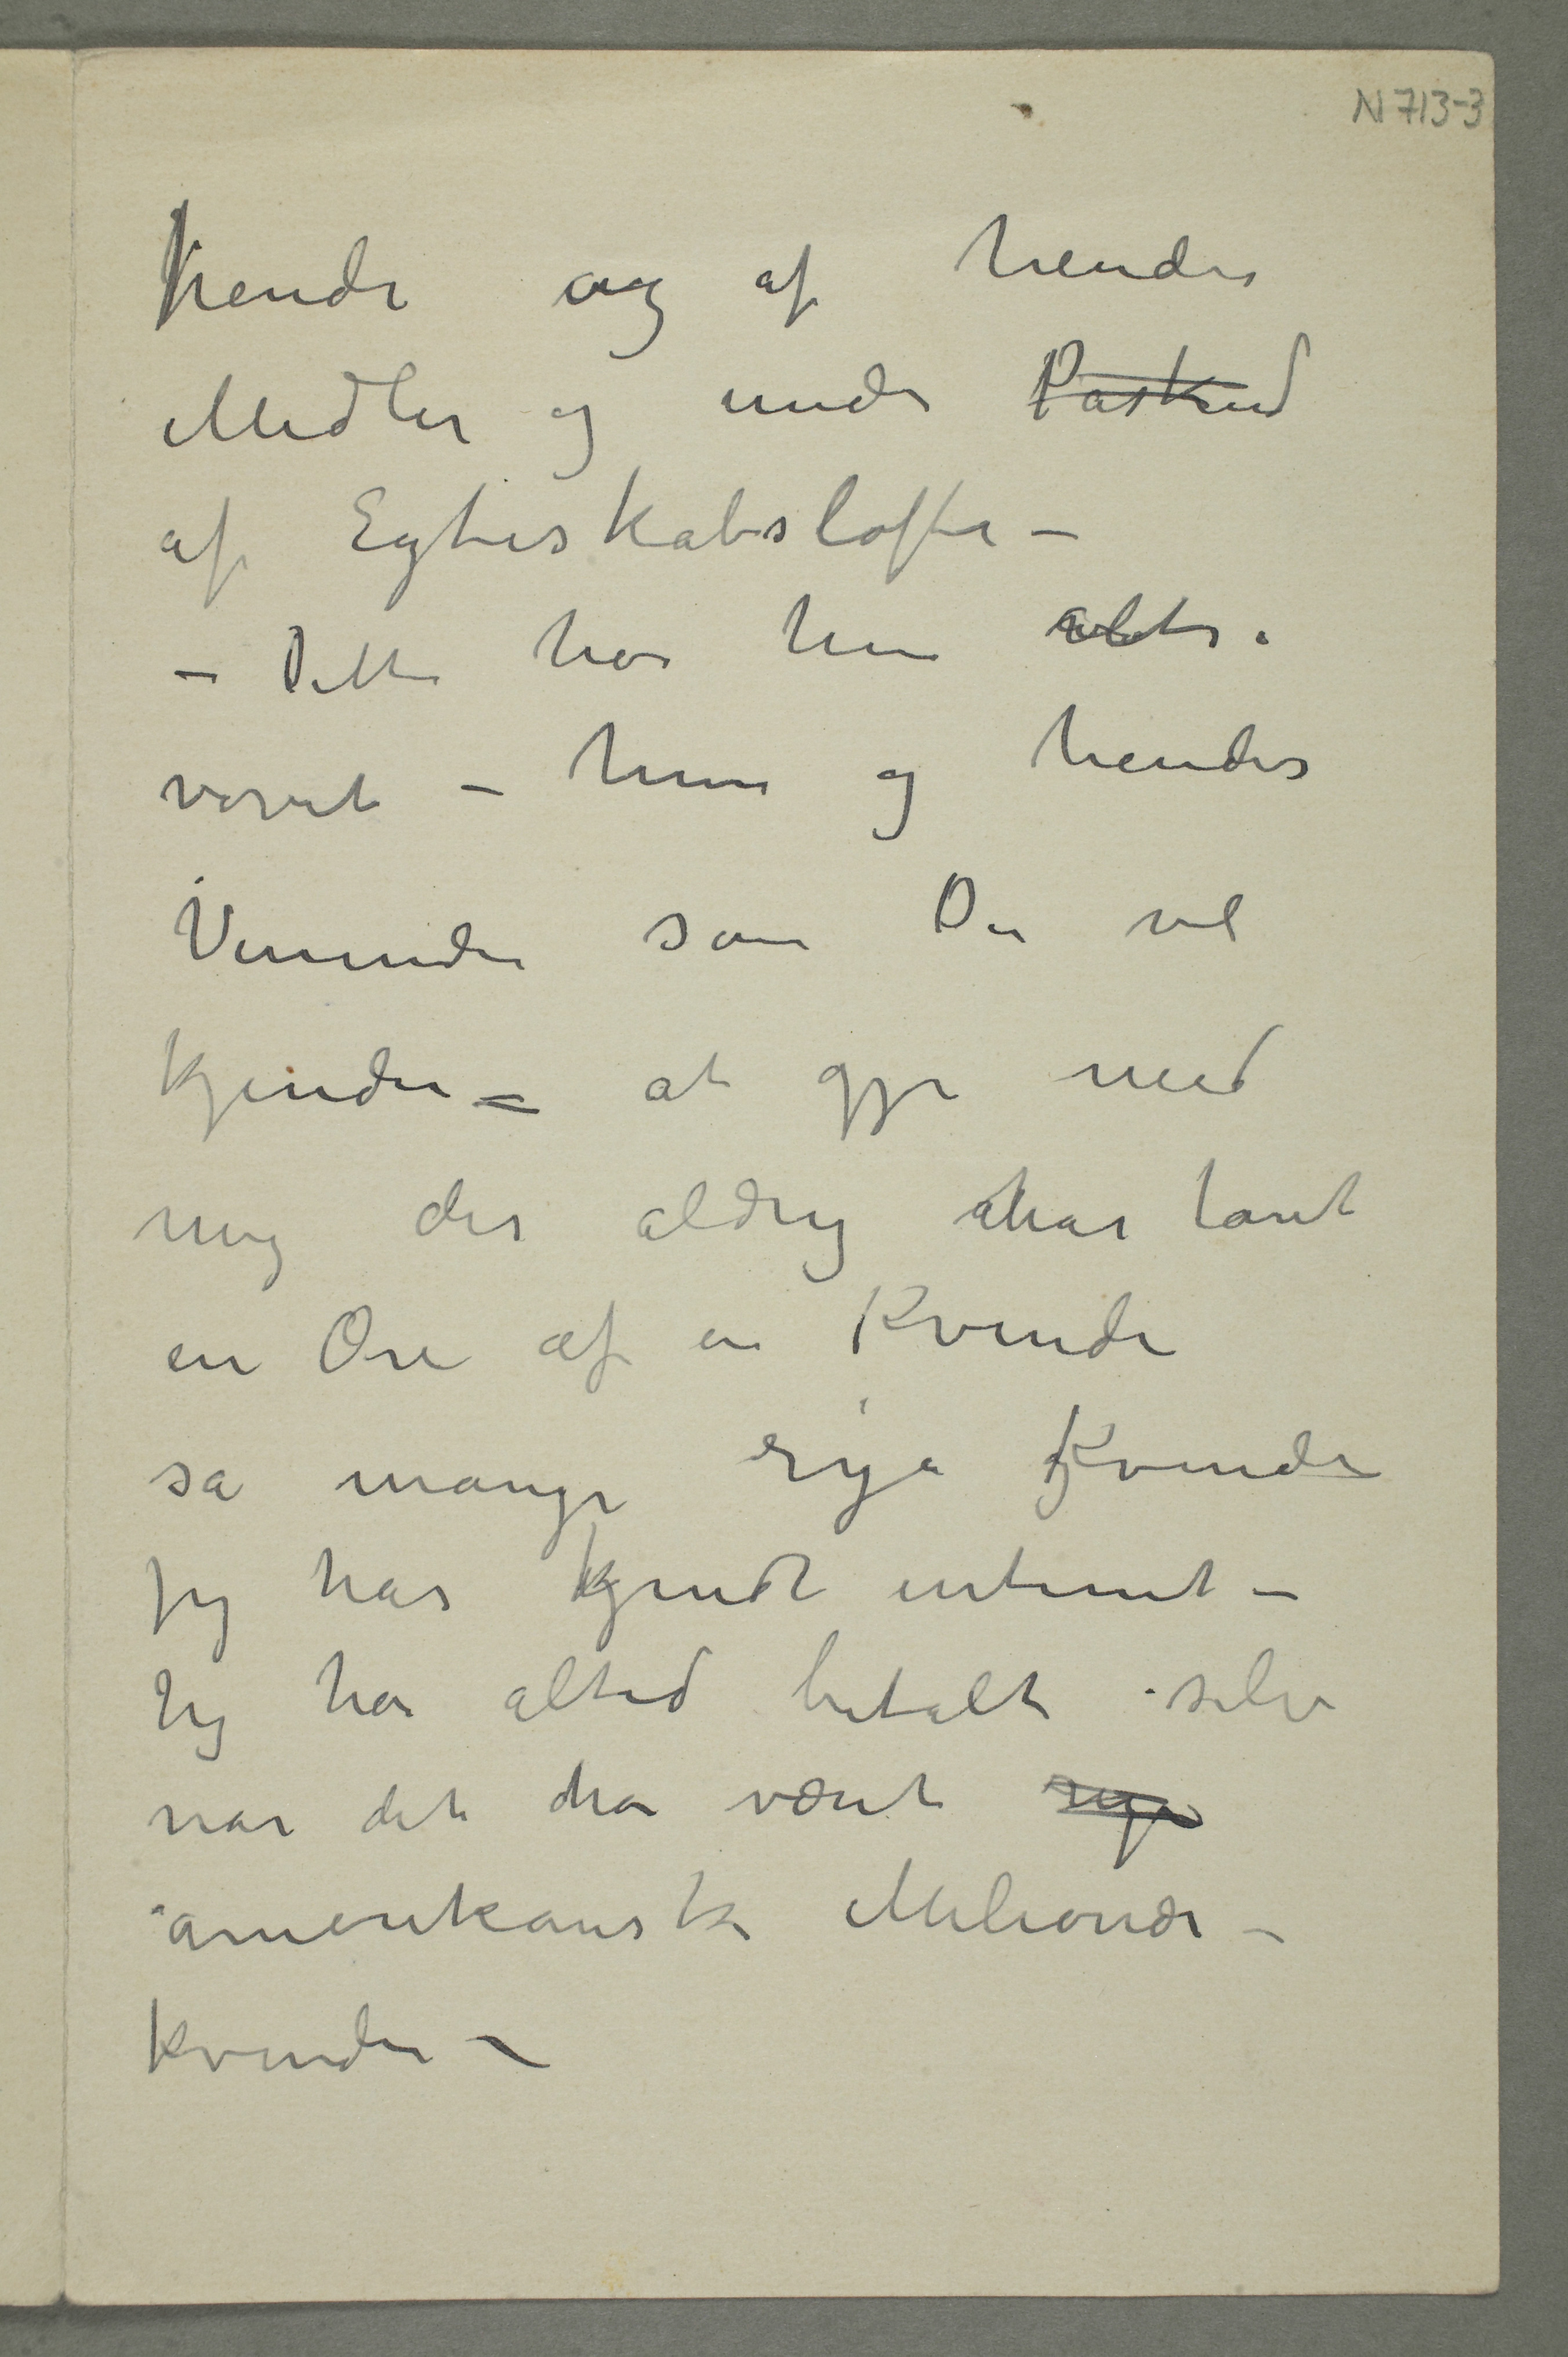 N 713-3
hende og af hendes
Midler og under Påskud
af Egteskabsløfte –
– Dette har hun altså
vovet – hun og hendes
Veninder som De vel
kjender – at gjør med
mig der aldrig har lånt
en Øre af en Kvinde
så mange rige Kvinder
jeg har kjendt intimt –
Jeg har altid betalt selv
når det har været rige
amerikanske Milionær –
kvinder –